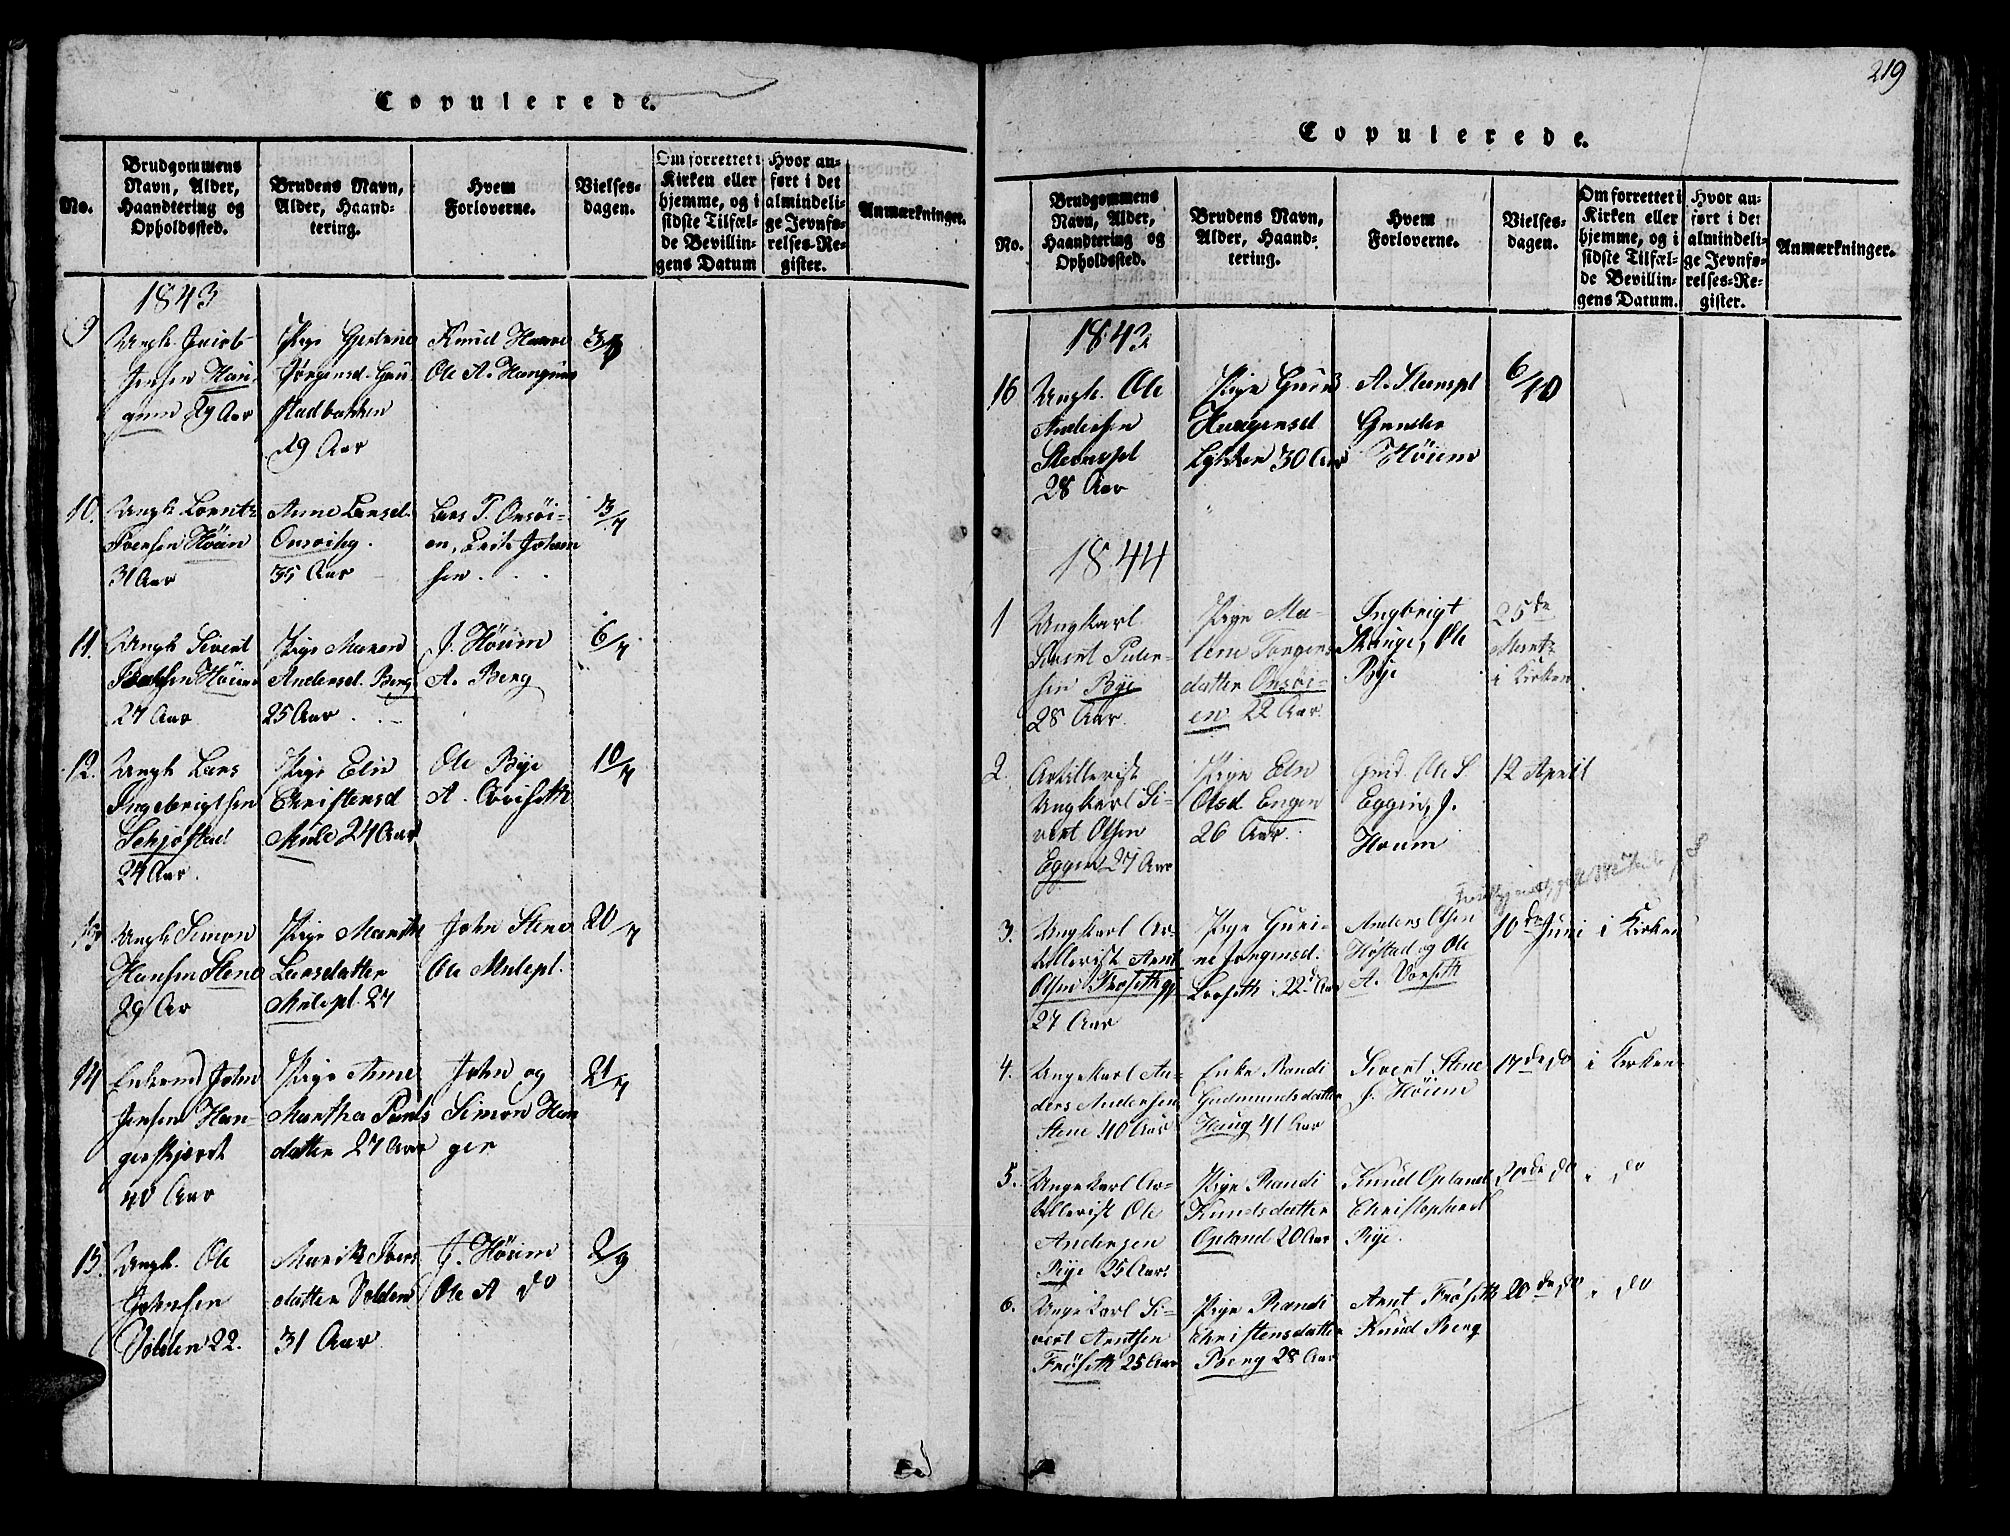 Copulerede.
No.
Brudgommens
Navn, Alder,
Haandtering og
Opholdssted.
Brudens Navn,
Alder, Haand-
tering.
Hvem
Forloverne.
Vielses-
dagen.
Om forrettet i
Kirken eller
hjemme, og i
sidste Tilfæl-
de Bevillin-
gens Datum
Hvor an-
ført i det
almindeli-
ge Jevnfø-
relses-Re-
gister.
Anmærkninger.
1843
9
Ungk. Jacob
Jensen
29 Aar
Pige Gjertrud
Jørgensd.
stadbakken
29 Aar
Knud
Ole A.
10.
Ungk. Lorentz
Iversen Höim
31 Aar
Anne Larsd.
35 Aar
Lars T. Onsöi-
en, Erik Johan
sen.
3/7
11.
Ungk Sivert
27 Aar
Pige Maren
Andersd. Berg
25 Aar
J. Höium
A. Berg
6/7
12.
Ungk Lars
Ingebrigtsen
Schjøstad
24 Aar.
Pige Elin
Christensd
Mule 24 Aar
Ole Bye
A.
10/7
13
Ungk. Simon
Hansen Stene
29 Ar
Pige Marith
Larsdatter
Mulepl. 27
John Stene
Ole Mulepl.
20/7
14
Enkemd John
Jensen Han-
gerskjæret
40 Aar
Pige Anne
Martha Pauls
datter 27 Aar
John og
Simon Han
ger
21/7
15.
Ungk. Ole
Johnsen
Volden 22.
Marit Ivers
datter Volden
31 Aar
J. Höium
Ole A do
2/9
219
Copulerede.
No.
Brudgommens
Navn, Alder,
Haandtering og
Opholdssted.
Brudens Navn,
Alder, Haand-
tering.
Hvem
Forloverne.
Vielses-
dagen.
Om forrettet i
Kirken eller
hjemme, og i
sidste Tilfæl-
de Bevillin-
gens Datum.
Hvor an-
ført i det
almindeli-
ge Jevnfø-
relses-Re-
gister.
Anmærkninger.
1843
16
Ungk. Ole
Andersen
Steenspl
28 Aar
Pige Guru
Haagensd
Lykken 30 Aar
A. Steenspl
Gunder
Höium
6/10
1844
1
Ungkarl
Sivert Peder-
sen Bye
28 Aar.
Pige Ma-
lene Jørgens
datter Onsöi-
en 22 Aar.
Ingbrigt
Stange, Ole
Bye
25de
Marts
i Kirken.
2.
Artillerist
Ungkarl Si-
vert Olsen
Eggen 27 Aar
Pige Eln
Olsd Engen
26 Aar.
Gmd. Ole S.
Eggen, J.
Houm
12 April
3.
Ungkarl Ar-
tillerist Arnt
Olsen Frøsethgj
27 Aar
Pige Guri-
ne Jørgensd.
22 Aar
Anders Olsen
Høstad og Ole
A. Vorseth
10de Juni
i Kirken
4.
Ungekarl An-
ders Andersen
Stene 40 Aar
Enke Randi
Gudmundsdatter
Haug 41 Aar
Sivert Stene
J. Höium
17de do
i Kirken
5.
Ungekarl Ar-
tillerist Ole
Andersen
Rye 25 Aar.
Pige Randi
Knudsdatter
Opland 20 Aar
Knud Opland
Christopher
Rye.
20de do
i do
6.
Ungekarl Si-
vert Arntsen
Frøseth 25 Aar
Pige Randi
Christensdatter
Berg 28 Aar
Arnt Frøseth
Knud Berg
20de do
i do